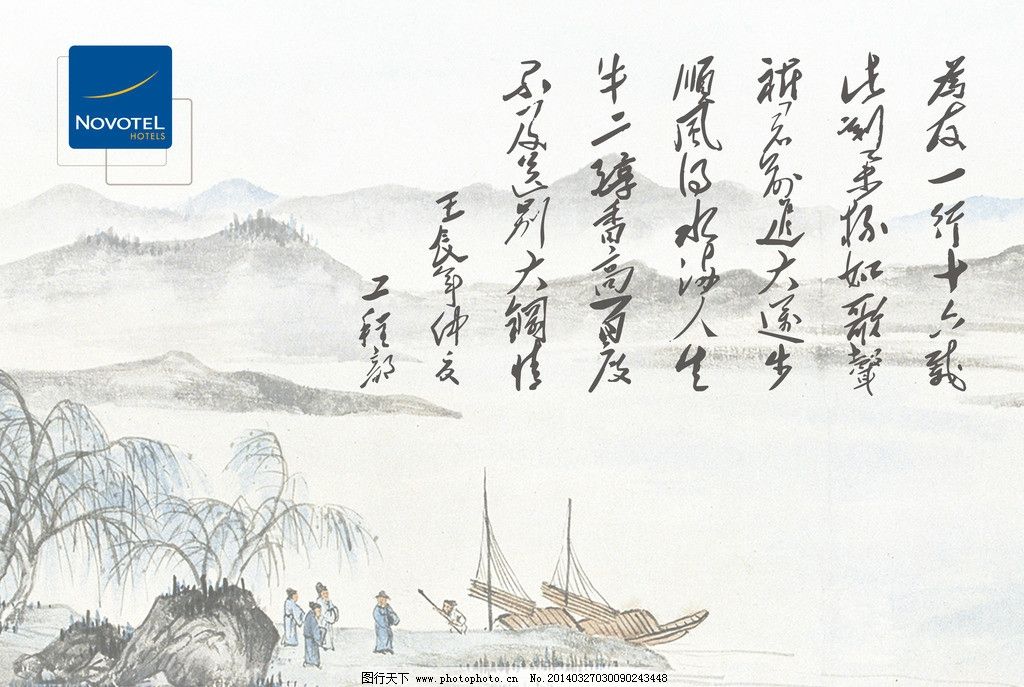 NOVOTEL
HOTELS
為友一行十六載
此如歌聲
君前大步
順風得水人生
牛二醇香高百度
不及送别大鋼情
壬辰年仲夏
工程部
图行天下 www.photophoto.cn No.20140327030090243448